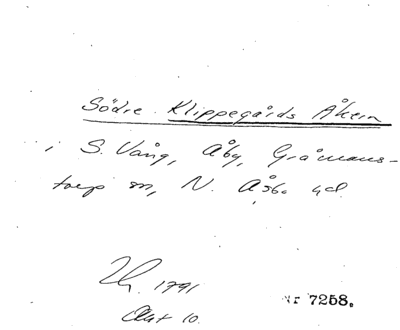 Södre Klippegårds Åkern
i S. Vång, Åby, Gråmans-
torp sn, N. Åsbo hd.
1791
Akt 10.
Nr 7258.